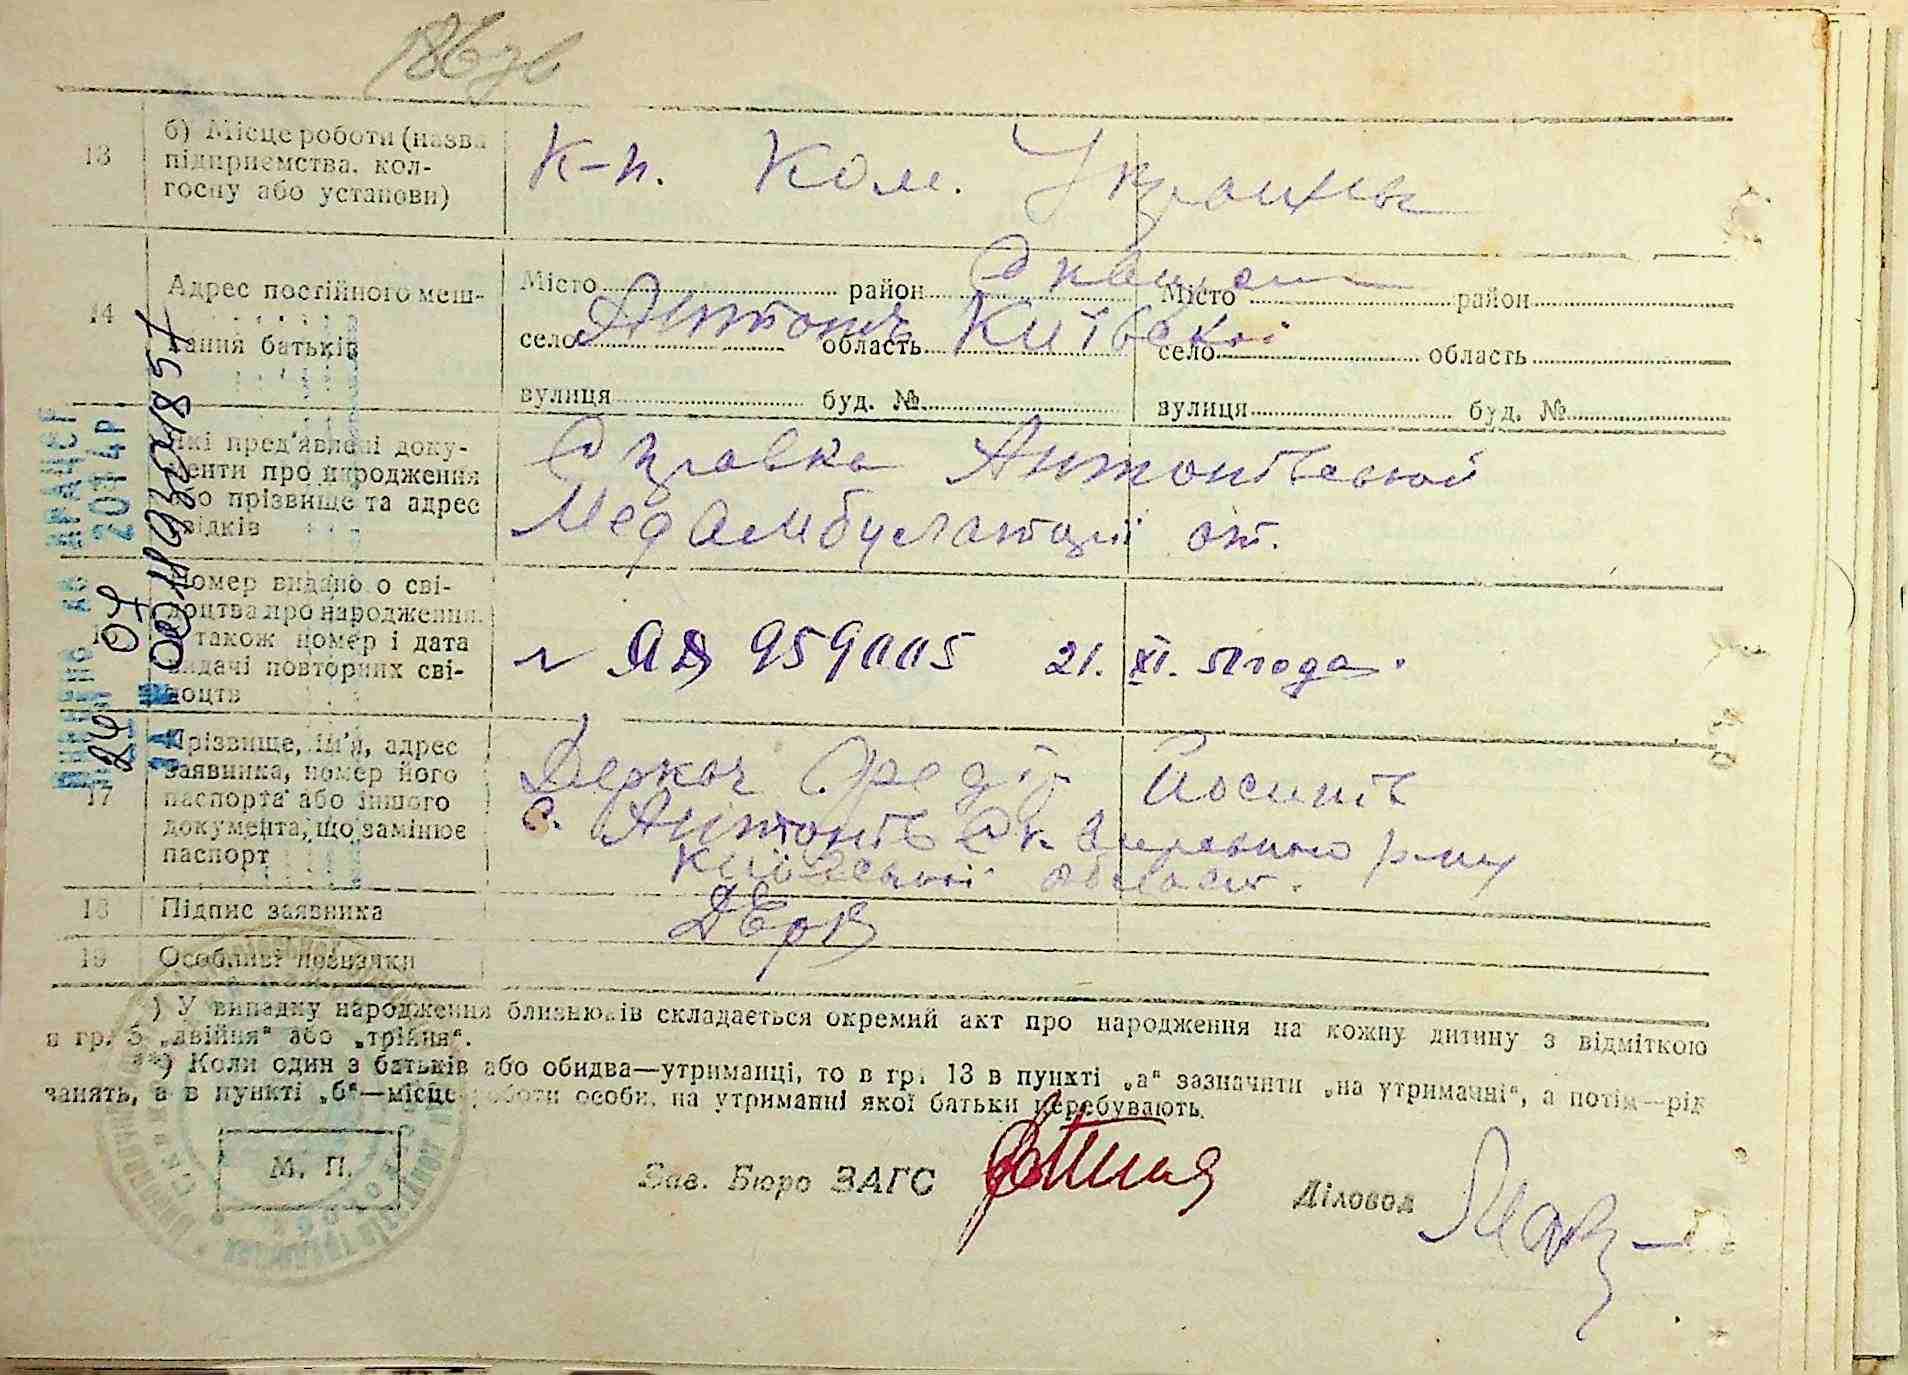 186 зв
13 б) Місце роботи (назва К-п. Ком. Украины
підприємства, кол-
госпу або установи)
14 Адрес постійного меш- Місто район Сквирск Місто район
кання батьків село Антонів область Київської село область
вулиця буд. № вулиця буд. №
які пред'явлені доку- Справка Антонівської
менти про народження Медамбулаторії от.
або прізвище та адрес
свідків
16 Номер видано о сві-
доцтва про народження,
також номер і дата № ЯД 959005 21. XI. 51 года.
видачі повторних сві-
доцтв
17 Прізвище, ім'я, адрес Деркач Йосипів
заявника, номер його с. Антонів Сквирського р-ну
паспорта або іншого Київської област.
документа, що замінює
паспорт
18 Підпис заявника ДЕрк
19 Особливі позначки
*) У випадку народження близнюків складається окремий акт про народження на кожну дитину з відміткою
в гр. 5 „двійня“ або „трійня“.
**) Коли один з батьків або обидва—утриманці, то в гр. 13 в пункті „а“ зазначити „на утриманні“, а потім—рід
занять, а в пункті „б“—місце роботи особи, на утриманні якої батьки перебувають.
М. П. Зав. Бюро ЗАГС Діловод
24 07 2014р
ЗА № 00011093071857